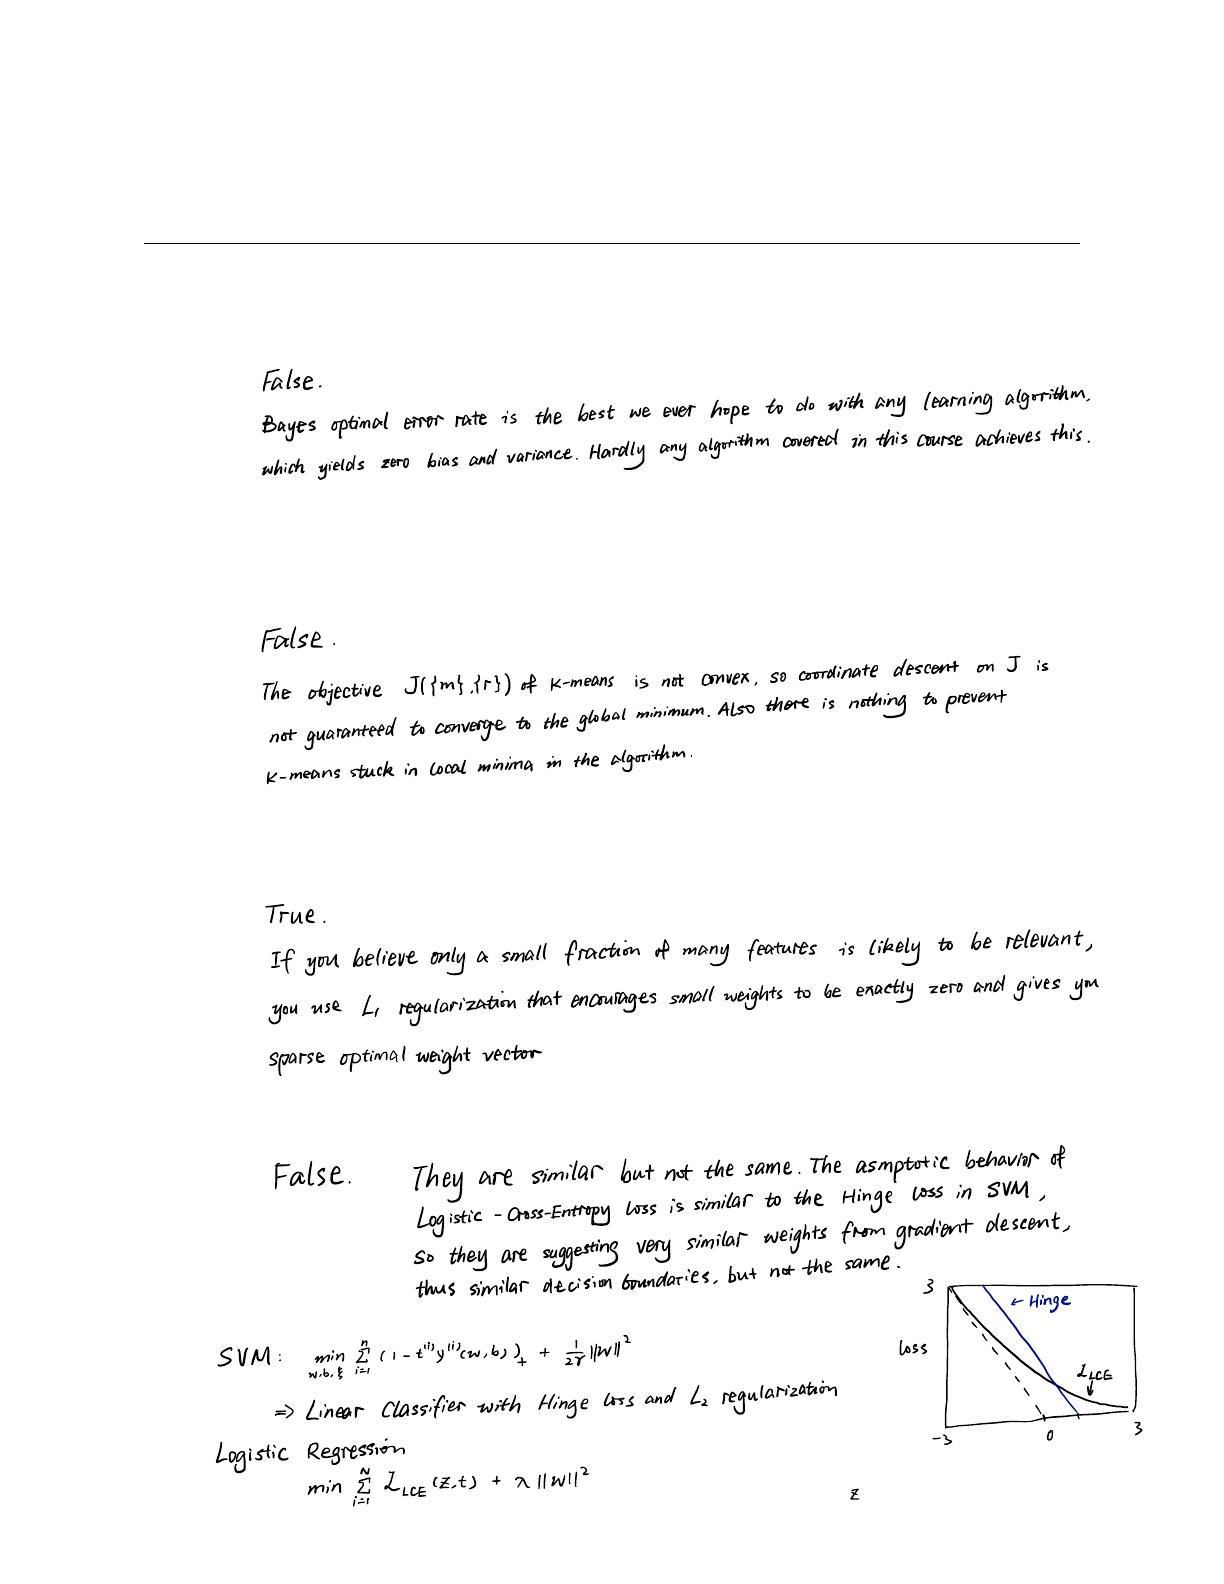 False.
Bayes optimal error rate is the best we ever hope to do with any learning algorithm,
which yields zero bias and variance. Hardly any algorithm covered in this course achieves this.
False.
The objective J({m},{r}) of K-means is not convex, so coordinate descent on J is
not guaranteed to converge to the global minimum. Also there is nothing to prevent
K-means stuck in local minima in the algorithm.
True.
If you believe only a small fraction of many features is likely to be relevant,
you use L₁ regularization that encourages small weights to be exactly zero and gives you
sparse optimal weight vector
False. They are similar but not the same. The asmptotic behavior of
Logistic-Cross-Entropy loss is similar to the Hinge loss in SVM,
so they are suggesting very similar weights from gradient descent,
thus similar decision boundaries, but not the same.
SVM: min_{w,b,ξ} Σ_{i=1}^{n} (1 - t⁽ⁱ⁾y⁽ⁱ⁾(w,b))₊ + 1/2γ ||w||²
⇒ Linear Classifier with Hinge loss and L₂ regularization
Logistic Regression
min Σ_{i=1}^{N} ℒ_LCE (z,t) + λ||w||²
3
← Hinge
loss
ℒ_LCE
-3 0 3
z